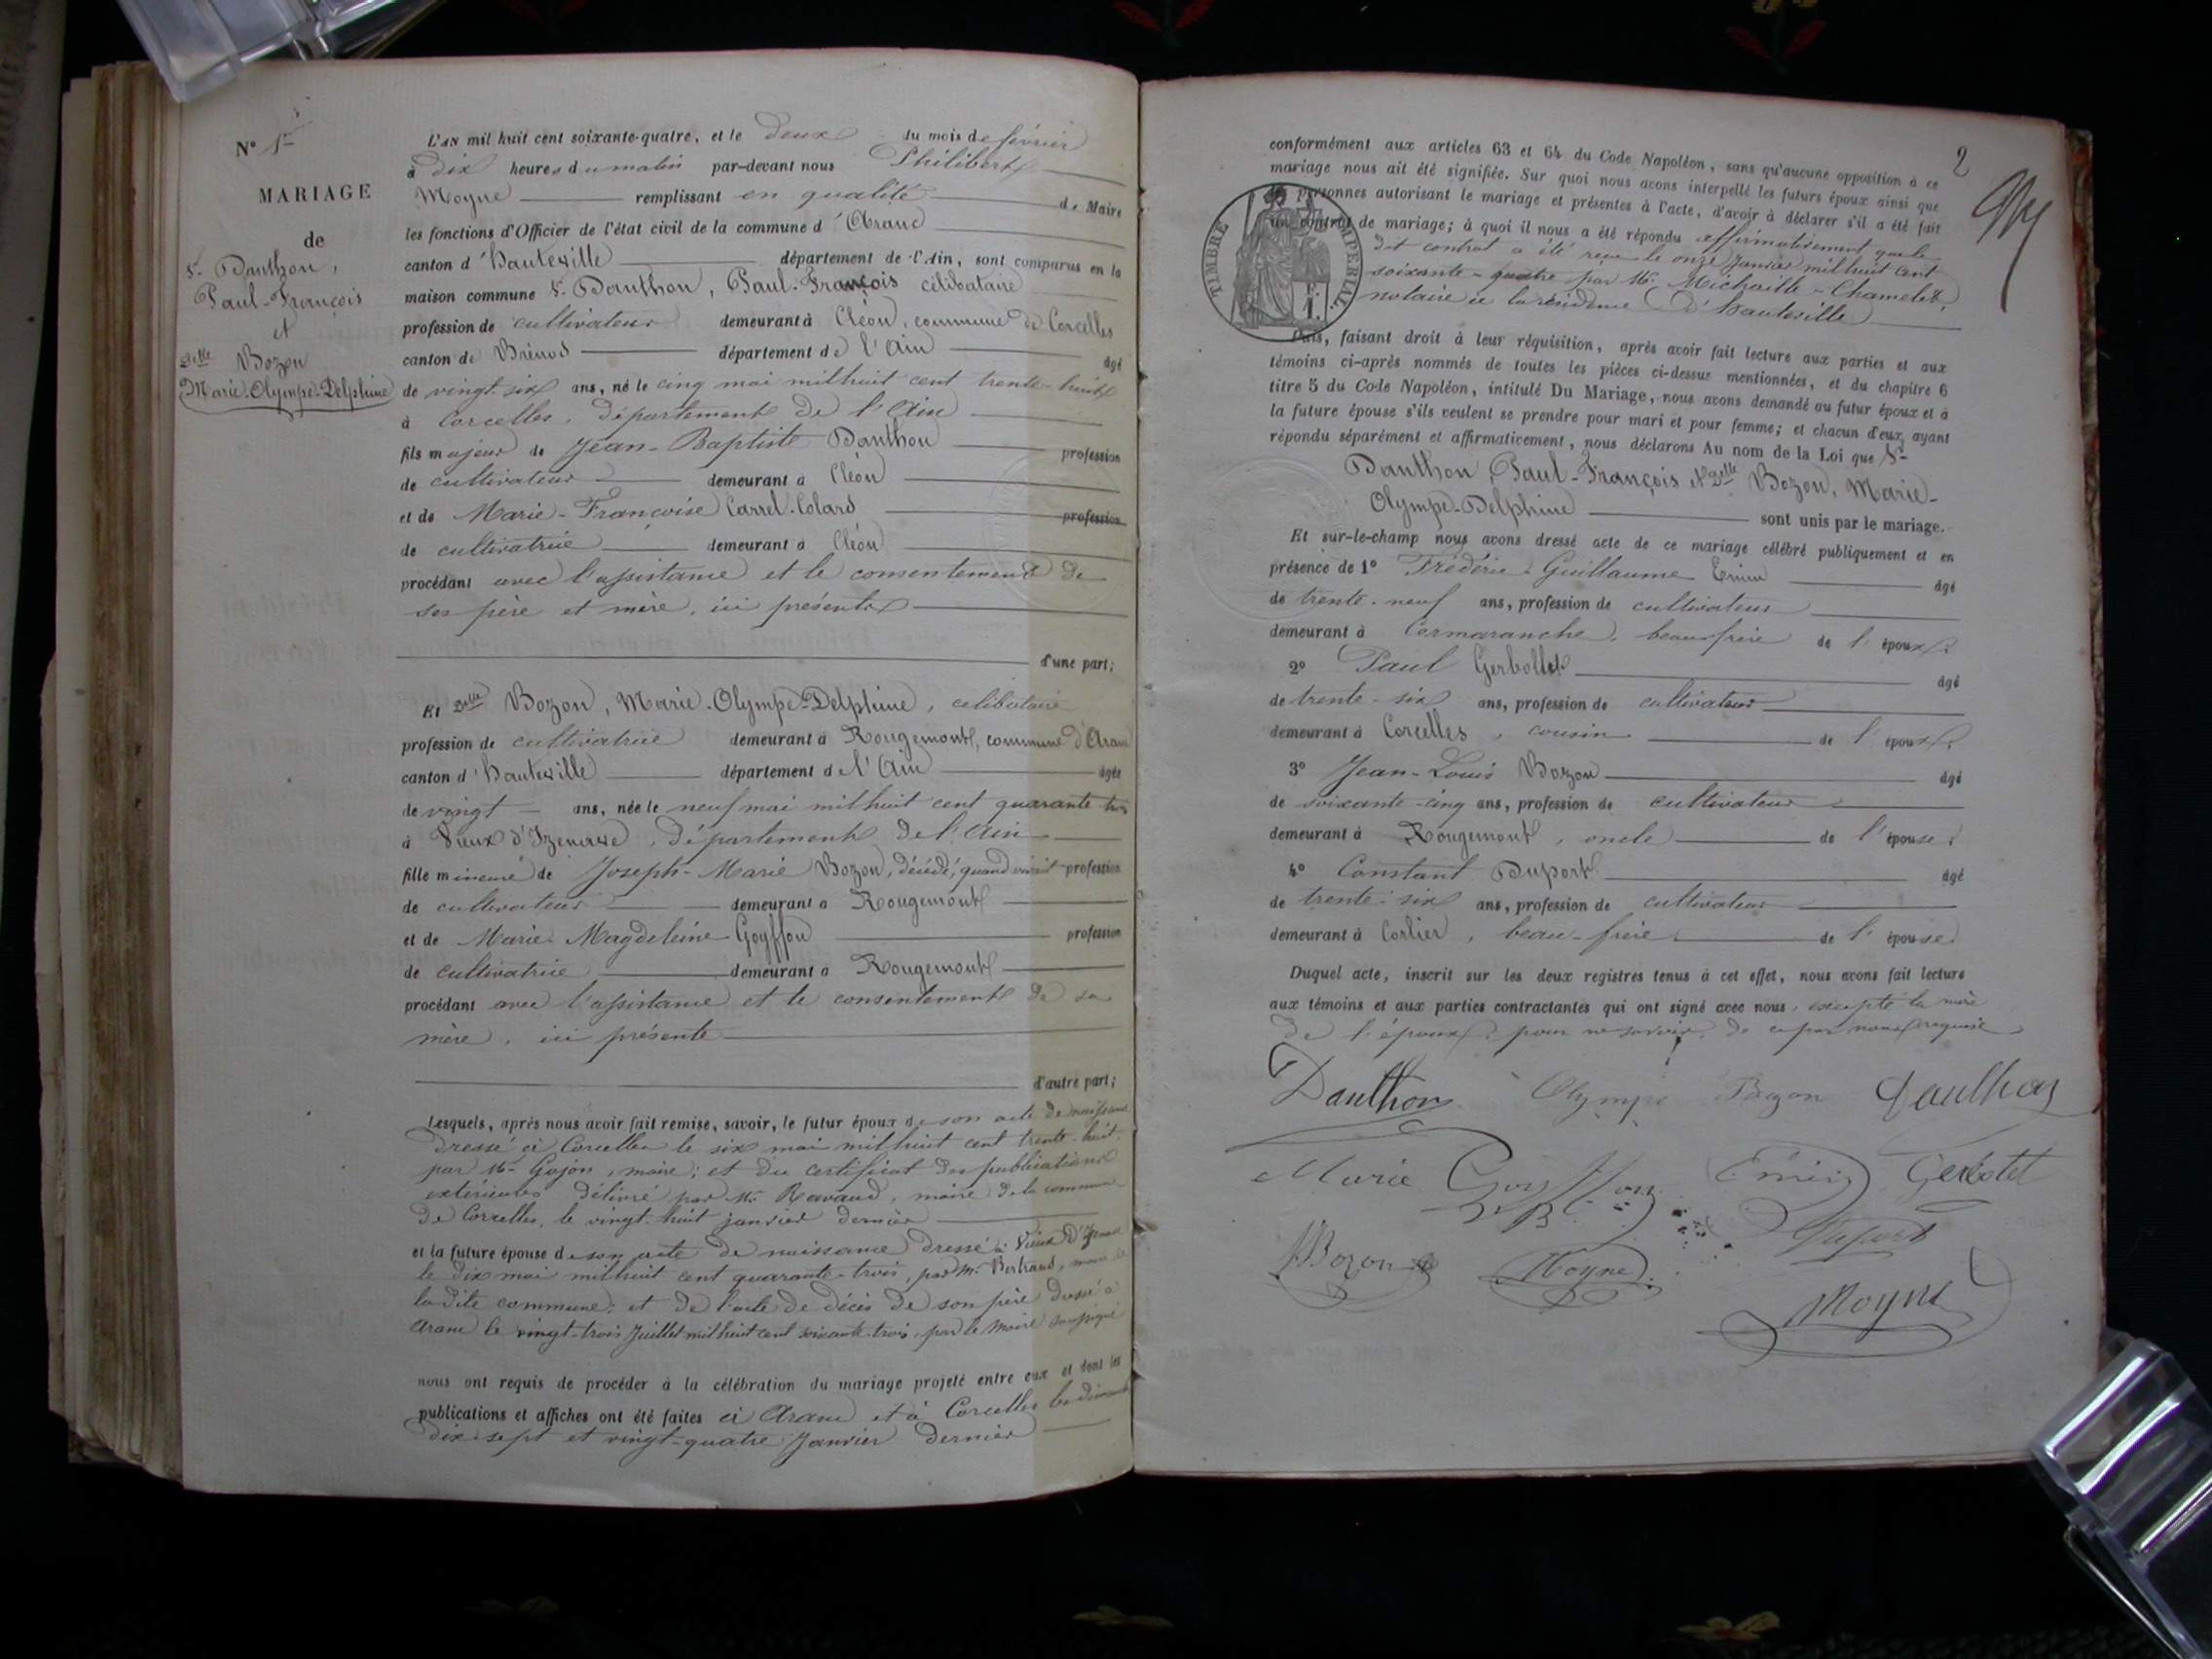 N° 1er
MARIAGE
de
Sr Danthon,
Paul-François
et
Delle Bozon
Marie-Olympe-Delphine
L'AN mil huit cent soixante-quatre, et le deux du mois de février
à dix heures du matin par-devant nous Philibert
Moyne remplissant en qualité de Maire
les fonctions d'Officier de l'état civil de la commune d'Aranc
canton d'Hauteville département de l'Ain, sont comparus en la
maison commune Sr Danthon, Paul-François célibataire
profession de cultivateur demeurant à Cléon, commune de Corcelles
canton de Brénod département de l'Ain âgé
de vingt-six ans, né le cinq mai mil huit cent trente-huit
à Corcelles, département de l'Ain
fils majeur de Jean-Baptiste Danthon profession
de cultivateur demeurant à Cléon
et de Marie-Françoise Carrel-Colard profession
de cultivatrice demeurant à Cléon
procédant avec l'assistance et le consentement de
ses père et mère, ici présents
d'une part;
Et Delle Bozon, Marie-Olympe-Delphine, célibataire
profession de cultivatrice demeurant à Rougemont, commune d'Aranc
canton d'Hauteville département de l'Ain âgée
de vingt ans, née le neuf mai mil huit cent quarante-trois
à Vieux d'Izenave, département de l'Ain
fille mineure de Joseph-Marie Bozon, décédé, quand vivait profession
de cultivateur demeurant à Rougemont
et de Marie Magdeleine Goyffon profession
de cultivatrice demeurant à Rougemont
procédant avec l'assistance et le consentement de sa
mère, ici présente
d'autre part;
Lesquels, après nous avoir fait remise, savoir, le futur époux de son acte de naissance
dressé à Corcelles le six mai mil huit cent trente-huit,
par Mr Gojon, maire; et du certificat des publications
extérieures délivré par Mr Ravaud, maire de la commune
de Corcelles, le vingt-huit janvier dernier
et la future épouse de son acte de naissance dressé à Vieux d'Izenave
le dix mai mil huit cent quarante-trois, par Mr Bertrand, maire de
la dite commune; et de l'acte de décès de son père dressé à
Aranc le vingt-trois Juillet mil huit cent soixante-trois, par le Maire soussigné
nous ont requis de procéder à la célébration du mariage projeté entre eux et dont les
publications et affiches ont été faites à Aranc et à Corcelles les dimanches
dix-sept et vingt-quatre Janvier dernier
2
conformément aux articles 63 et 64 du Code Napoléon, sans qu'aucune opposition à ce
mariage nous ait été signifiée. Sur quoi nous avons interpellé les futurs époux ainsi que
les personnes autorisant le mariage et présentes à l'acte, d'avoir à déclarer s'il a été fait
un contrat de mariage; à quoi il nous a été répondu affirmativement que le
dit contrat a été reçu le onze Janvier mil huit cent
soixante-quatre par Mr Michaille-Chamelet,
notaire à la résidence d'Hauteville
TIMBRE IMPERIAL
1 F.
Puis, faisant droit à leur réquisition, après avoir fait lecture aux parties et aux
témoins ci-après nommés de toutes les pièces ci-dessus mentionnées, et du chapitre 6
titre 5 du Code Napoléon, intitulé Du Mariage, nous avons demandé au futur époux et à
la future épouse s'ils veulent se prendre pour mari et pour femme; et chacun d'eux ayant
répondu séparément et affirmativement, nous déclarons Au nom de la Loi que Sr
Danthon, Paul-François et Delle Bozon, Marie-
Olympe-Delphine sont unis par le mariage.
Et sur-le-champ nous avons dressé acte de ce mariage célébré publiquement et en
présence de 1° Frédéric-Guillaume Emin âgé
de trente-neuf ans, profession de cultivateur
demeurant à Cormaranche, beau-frère de l'époux;
2° Paul Gerbollet âgé
de trente-six ans, profession de cultivateur
demeurant à Corcelles, cousin de l'époux;
3° Jean-Louis Bozon âgé
de soixante-cinq ans, profession de cultivateur
demeurant à Rougemont, oncle de l'épouse;
4° Constant Duport âgé
de trente-six ans, profession de cultivateur
demeurant à Corlier, beau-frère de l'épouse.
Duquel acte, inscrit sur les deux registres tenus à cet effet, nous avons fait lecture
aux témoins et aux parties contractantes qui ont signé avec nous, excepté la mère
de l'époux, pour ne savoir, de ce par nous requise
Danthon Olympe Bozon Danthon
Marie Goyffon Emin Gerbolet
Bozon Moyne Duport
Moyne